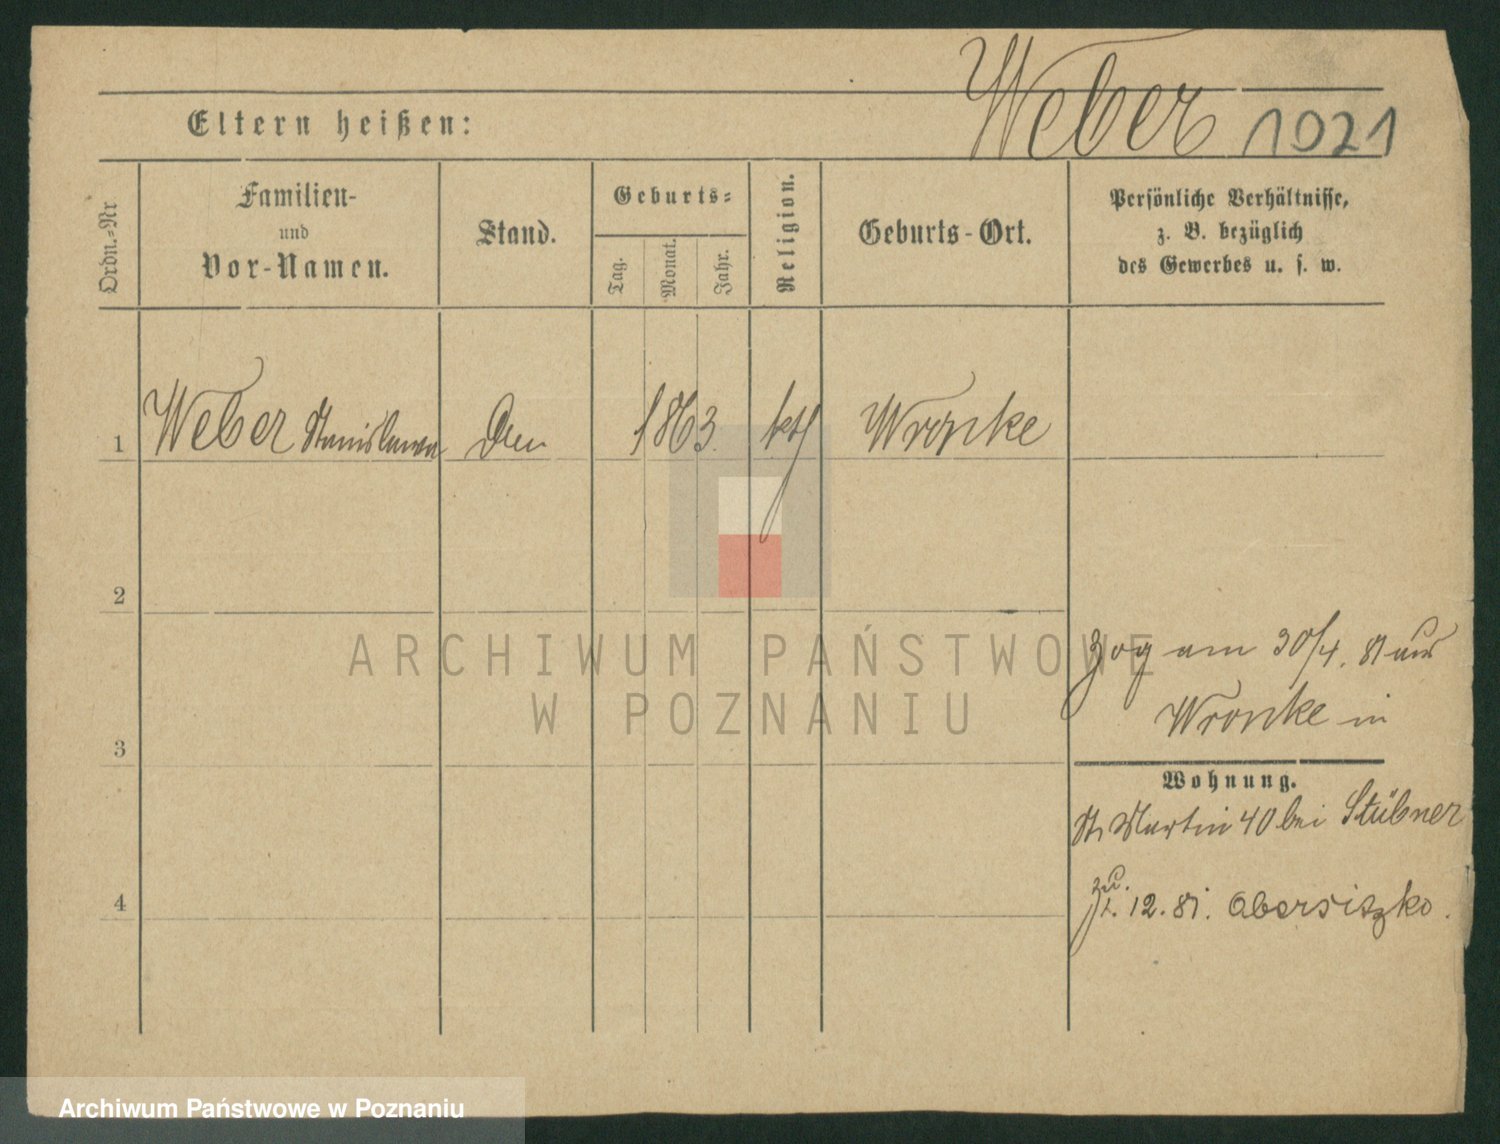 Weber 1021
Eltern heißen:
Ordn.-Nr
Familien-
und
Vor-Namen.
Stand.
Geburts-
Tag.
Monat.
Jahr.
Religion.
Geburts-Ort.
Persönliche Verhältnisse,
z. B. bezüglich
des Gewerbes u. s. w.
1 Weber Stanislawa 1863 kth Wronke
2
3
4
zog am 30/4. 81 aus
Wronke in
Wohnung.
St Martin 40 bei Stübner
zu.
12. 81. Obersiszko.
ARCHIWUM PAŃSTWOWE
W POZNANIU
Archiwum Państwowe w Poznaniu